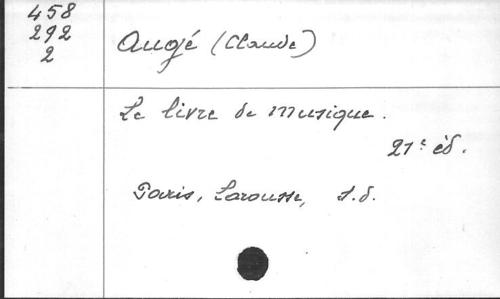 458
292
2
Augé (Claude)
Le livre de musique.
21e éd.
Paris, Larousse, s.d.